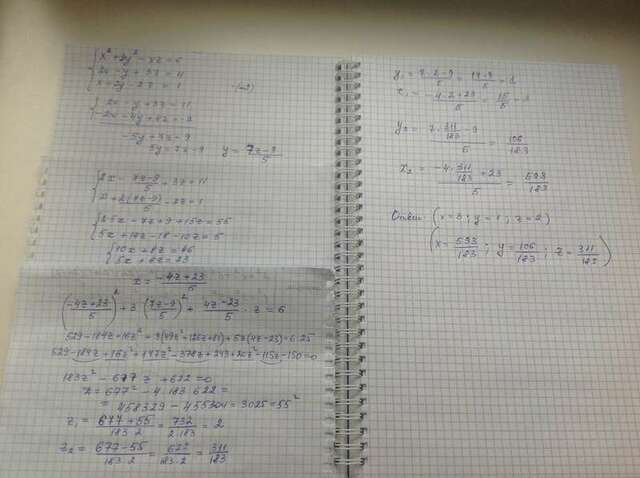 x² + 3y² - xz = 6
2x - y + 3z = 11
x + 2y - 2z = 1 (-2)
2x - y + 3z = 11
-2x - 4y + 4z = -2
-5y + 7z = 9
5y = 7z - 9 y = 7z-9/5
2x - 7z-9/5 + 3z = 11
x + 2(7z-9)/5 - 2z = 1
10x + 8z = 46
5x + 4z = 23
x = -4z+23/5
(-4z+23/5)² + 3(7z-9/5)² + 4z-23/5 · z = 6
529 - 184z + 16z² + 3(49z² - 126z + 81) + 5z(4z - 23) = 6·25
529 - 184z + 16z² + 147z² - 378z + 243 + 20z² - 115z - 150 = 0
183z² - 677z + 622 = 0
= 677² - 4·183·622 =
= 458329 - 455304 = 3025 = 55²
z₁ = 677+55/183·2 = 732/2·183 = 2
z₂ = 677-55/183·2 = 622/183·2 = 311/183
y₁ = 7·2-9/5 = 14-9/5 = 1
x₁ = -4·2+23/5 = 15/5 = 3
y₂ = 7·311/183 - 9/5 = 106/183
x₂ = -4·311/183 + 23/5 = 593/183
Ответ: (x=3; y=1; z=2)
(x=593/183; y=106/183; z=311/183)